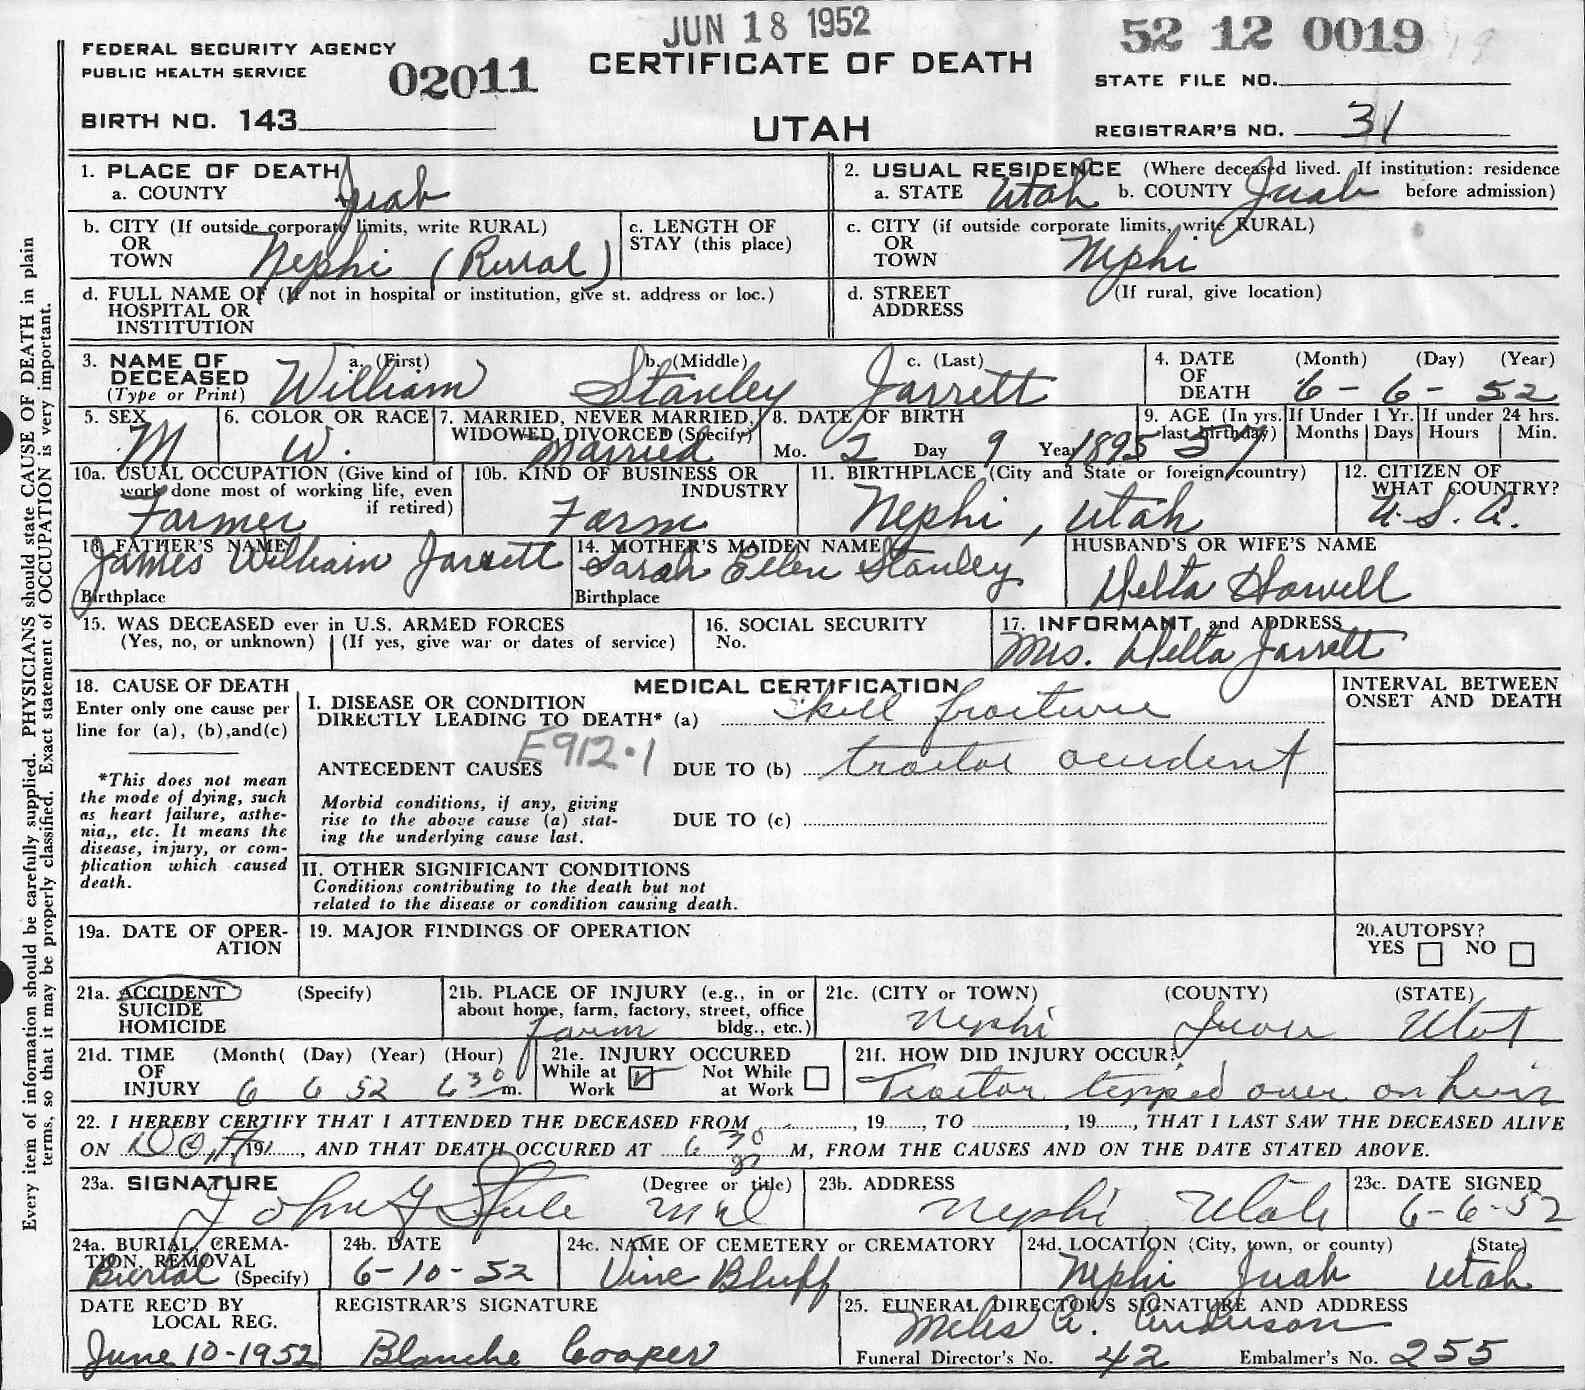 JUN 18 1952
52 12 0019
FEDERAL SECURITY AGENCY
PUBLIC HEALTH SERVICE
02011
CERTIFICATE OF DEATH
STATE FILE NO.
BIRTH NO. 143
UTAH
REGISTRAR'S NO. 31
Every item of information should be carefully supplied. PHYSICIANS should state CAUSE OF DEATH in plain
terms, so that it may be properly classified. Exact statement of OCCUPATION is very important.
1. PLACE OF DEATH
a. COUNTY Juab
2. USUAL RESIDENCE (Where deceased lived. If institution: residence
a. STATE Utah b. COUNTY Juab before admission)
b. CITY (If outside corporate limits, write RURAL)
OR
TOWN Nephi (Rural)
c. LENGTH OF
STAY (this place)
c. CITY (if outside corporate limits, write RURAL)
OR
TOWN Nephi
d. FULL NAME OF (If not in hospital or institution, give st. address or loc.)
HOSPITAL OR
INSTITUTION
d. STREET (If rural, give location)
ADDRESS
3. NAME OF DECEASED (Type or Print)
a. (First) William
b. (Middle) Stanley
c. (Last) Jarrett
4. DATE OF DEATH (Month) (Day) (Year)
6 - 6 - 52
5. SEX M
6. COLOR OR RACE W.
7. MARRIED, NEVER MARRIED,
WIDOWED, DIVORCED (Specify)
Married
8. DATE OF BIRTH
Mo. 2 Day 9 Year 1895
9. AGE (In yrs. last birthday) 57
If Under 1 Yr. Months Days
If under 24 hrs. Hours Min.
10a. USUAL OCCUPATION (Give kind of
work done most of working life, even
if retired)
Farmer
10b. KIND OF BUSINESS OR
INDUSTRY
Farm
11. BIRTHPLACE (City and State or foreign country)
Nephi, Utah
12. CITIZEN OF
WHAT COUNTRY?
U. S. A.
13. FATHER'S NAME
James William Jarrett
Birthplace
14. MOTHER'S MAIDEN NAME
Sarah Ellen Stanley
Birthplace
HUSBAND'S OR WIFE'S NAME
Delta Howell
15. WAS DECEASED ever in U.S. ARMED FORCES
(Yes, no, or unknown) (If yes, give war or dates of service)
16. SOCIAL SECURITY
No.
17. INFORMANT and ADDRESS
Mrs. Delta Jarrett
18. CAUSE OF DEATH
Enter only one cause per
line for (a), (b),and(c)
*This does not mean
the mode of dying, such
as heart failure, asthe-
nia,, etc. It means the
disease, injury, or com-
plication which caused
death.
MEDICAL CERTIFICATION
I. DISEASE OR CONDITION
DIRECTLY LEADING TO DEATH* (a) Skull fracture
E912.1
ANTECEDENT CAUSES DUE TO (b) tractor accident
Morbid conditions, if any, giving
rise to the above cause (a) stat-
ing the underlying cause last.
DUE TO (c)
II. OTHER SIGNIFICANT CONDITIONS
Conditions contributing to the death but not
related to the disease or condition causing death.
INTERVAL BETWEEN
ONSET AND DEATH
19a. DATE OF OPER-
ATION
19. MAJOR FINDINGS OF OPERATION
20.AUTOPSY?
YES NO
21a. ACCIDENT (Specify)
SUICIDE
HOMICIDE
21b. PLACE OF INJURY (e.g., in or
about home, farm, factory, street, office
bldg., etc.)
farm
21c. (CITY or TOWN) (COUNTY) (STATE)
Nephi Juab Utah
21d. TIME (Month( (Day) (Year) (Hour)
OF
INJURY 6 6 52 6 30 m.
21e. INJURY OCCURED
While at Work Not While at Work
21f. HOW DID INJURY OCCUR?
Tractor tipped over on him
22. I HEREBY CERTIFY THAT I ATTENDED THE DECEASED FROM , 19 , TO , 19 , THAT I LAST SAW THE DECEASED ALIVE
ON , 19 , AND THAT DEATH OCCURED AT 6 30 M, FROM THE CAUSES AND ON THE DATE STATED ABOVE.
23a. SIGNATURE (Degree or title)
John G Steele MD
23b. ADDRESS
Nephi, Utah
23c. DATE SIGNED
6-6-52
24a. BURIAL, CREMA-
TION, REMOVAL
Burial (Specify)
24b. DATE
6-10-52
24c. NAME OF CEMETERY or CREMATORY
Vine Bluff
24d. LOCATION (City, town, or county) (State)
Nephi Juab Utah
DATE REC'D BY
LOCAL REG.
June 10-1952
REGISTRAR'S SIGNATURE
Blanche Cooper
25. FUNERAL DIRECTOR'S SIGNATURE AND ADDRESS
Miles A. Anderson
Funeral Director's No. 42 Embalmer's No. 255